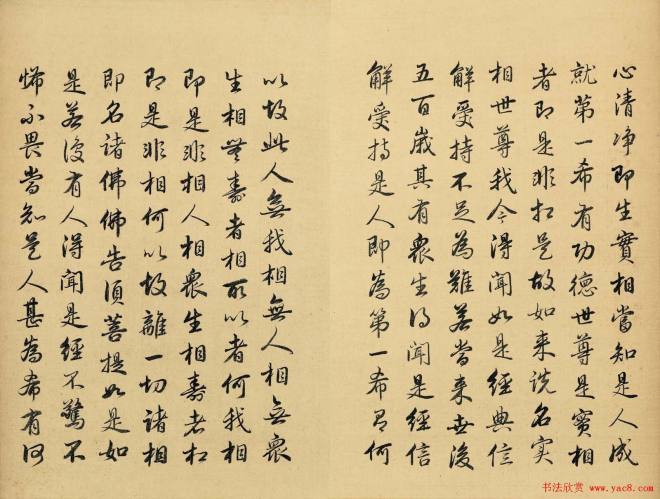 心清净即生實相當知是人成
就第一希有功德世尊是實相
者即是非相是故如来說名实
相世尊我今得聞如是經典信
解受持不足為難若當来世後
五百歲其有衆生得聞是經信
解受持是人即為第一希有何
以故此人無我相無人相無衆
生相無壽者相所以者何我相
即是非相人相衆生相壽者相
即是非相何以故離一切諸相
即名諸佛佛告須菩提如是如
是若復有人得聞是經不驚不
怖不畏當知是人甚為希有何
书法欣赏
www.yac8.com